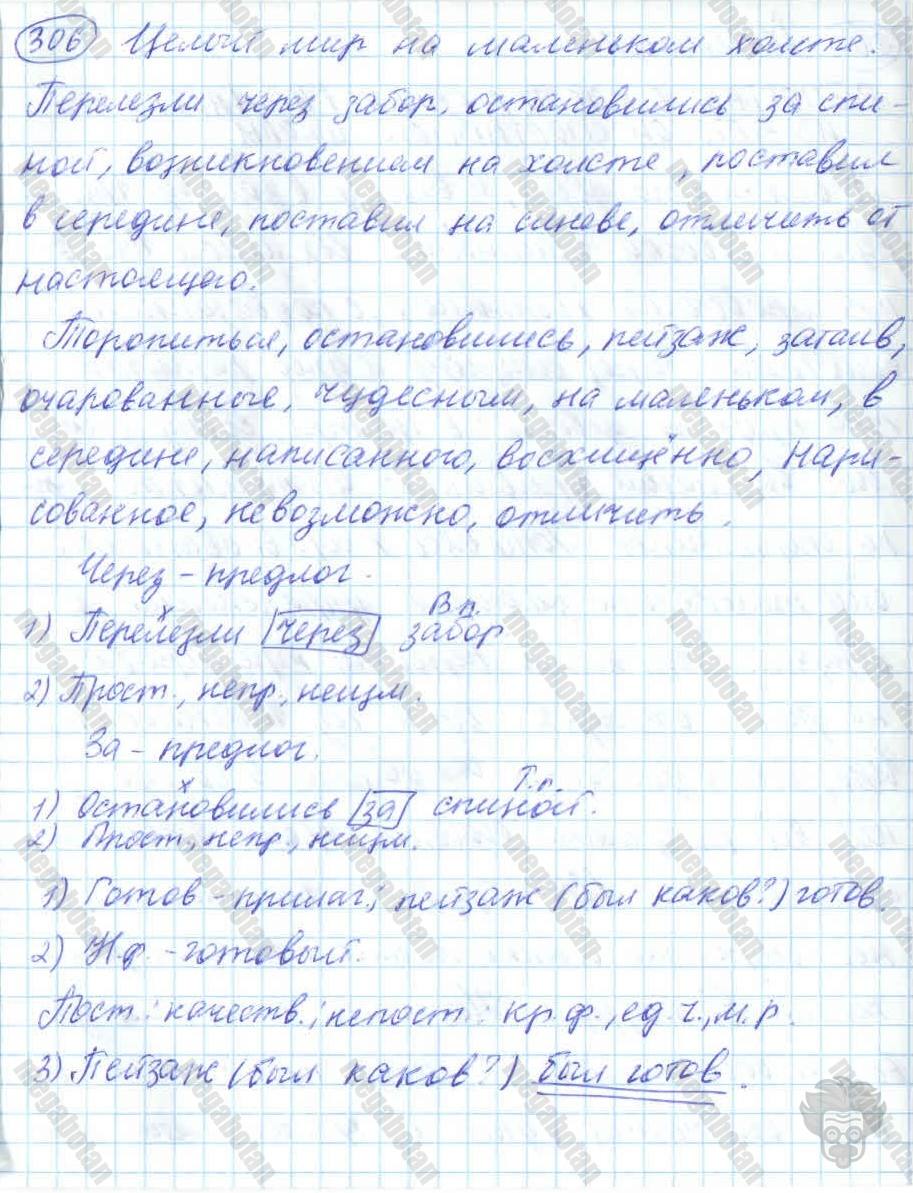 306 Целый мир на маленьком холсте.
Перелезли через забор, остановились за спи-
ной, возникновением на холсте, поставил
в середине, поставил на синеве, отличить от
настоящего.
Торопиться, остановились, пейзаж, затаив,
очарованные, чудесным, на маленьком, в
середине, написанного, восхищённо, нари-
сованное, невозможно, отличить.
Через – предлог.
В.п.
1) Перелезли через забор
2) Прост., непр., неизм.
За – предлог.
Т.п.
1) Остановились за спиной.
2) Прост., непр., неизм.
1) Готов – прилаг.; пейзаж (был каков?) готов.
2) Н.ф. – готовый.
Пост.: качеств.; непост.: кр.ф., ед.ч., м.р.
3) Пейзаж (был каков?) был готов.
megahotan